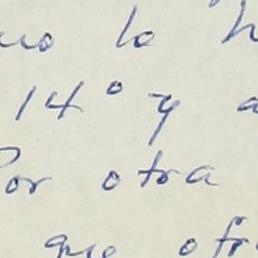 lo
14° y a
Por otra
que ofr